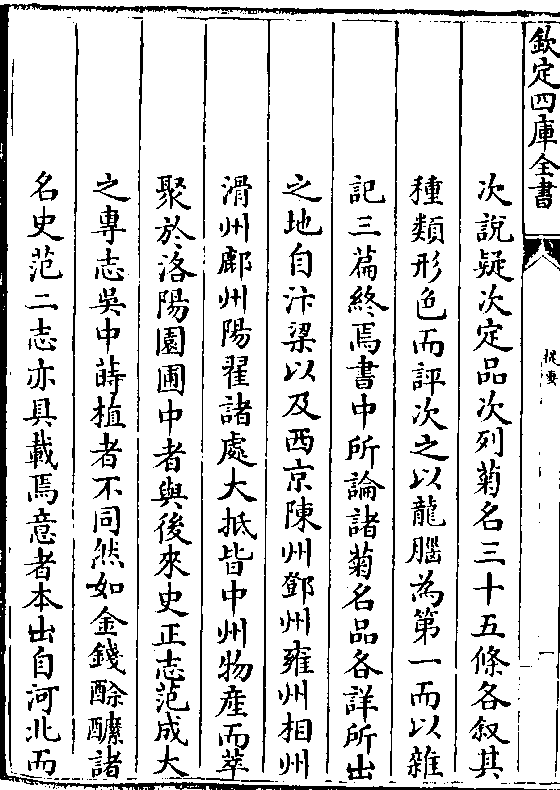 欽定四庫全書
提要
次說疑次定品次列菊名三十五條各叙其
種類形色而評次之以龍腦為第一而以雜
記三篇終焉書中所論諸菊名品各詳所出
之地自汴梁以及西京陳州鄧州雍州相州
滑州鄜州陽翟諸處大抵皆中州物産而萃
聚於洛陽園圃中者與後來史正志范成大
之專志吳中蒔植者不同然如金錢酴醿諸
名史范二志亦具載焉意者本出自河北而